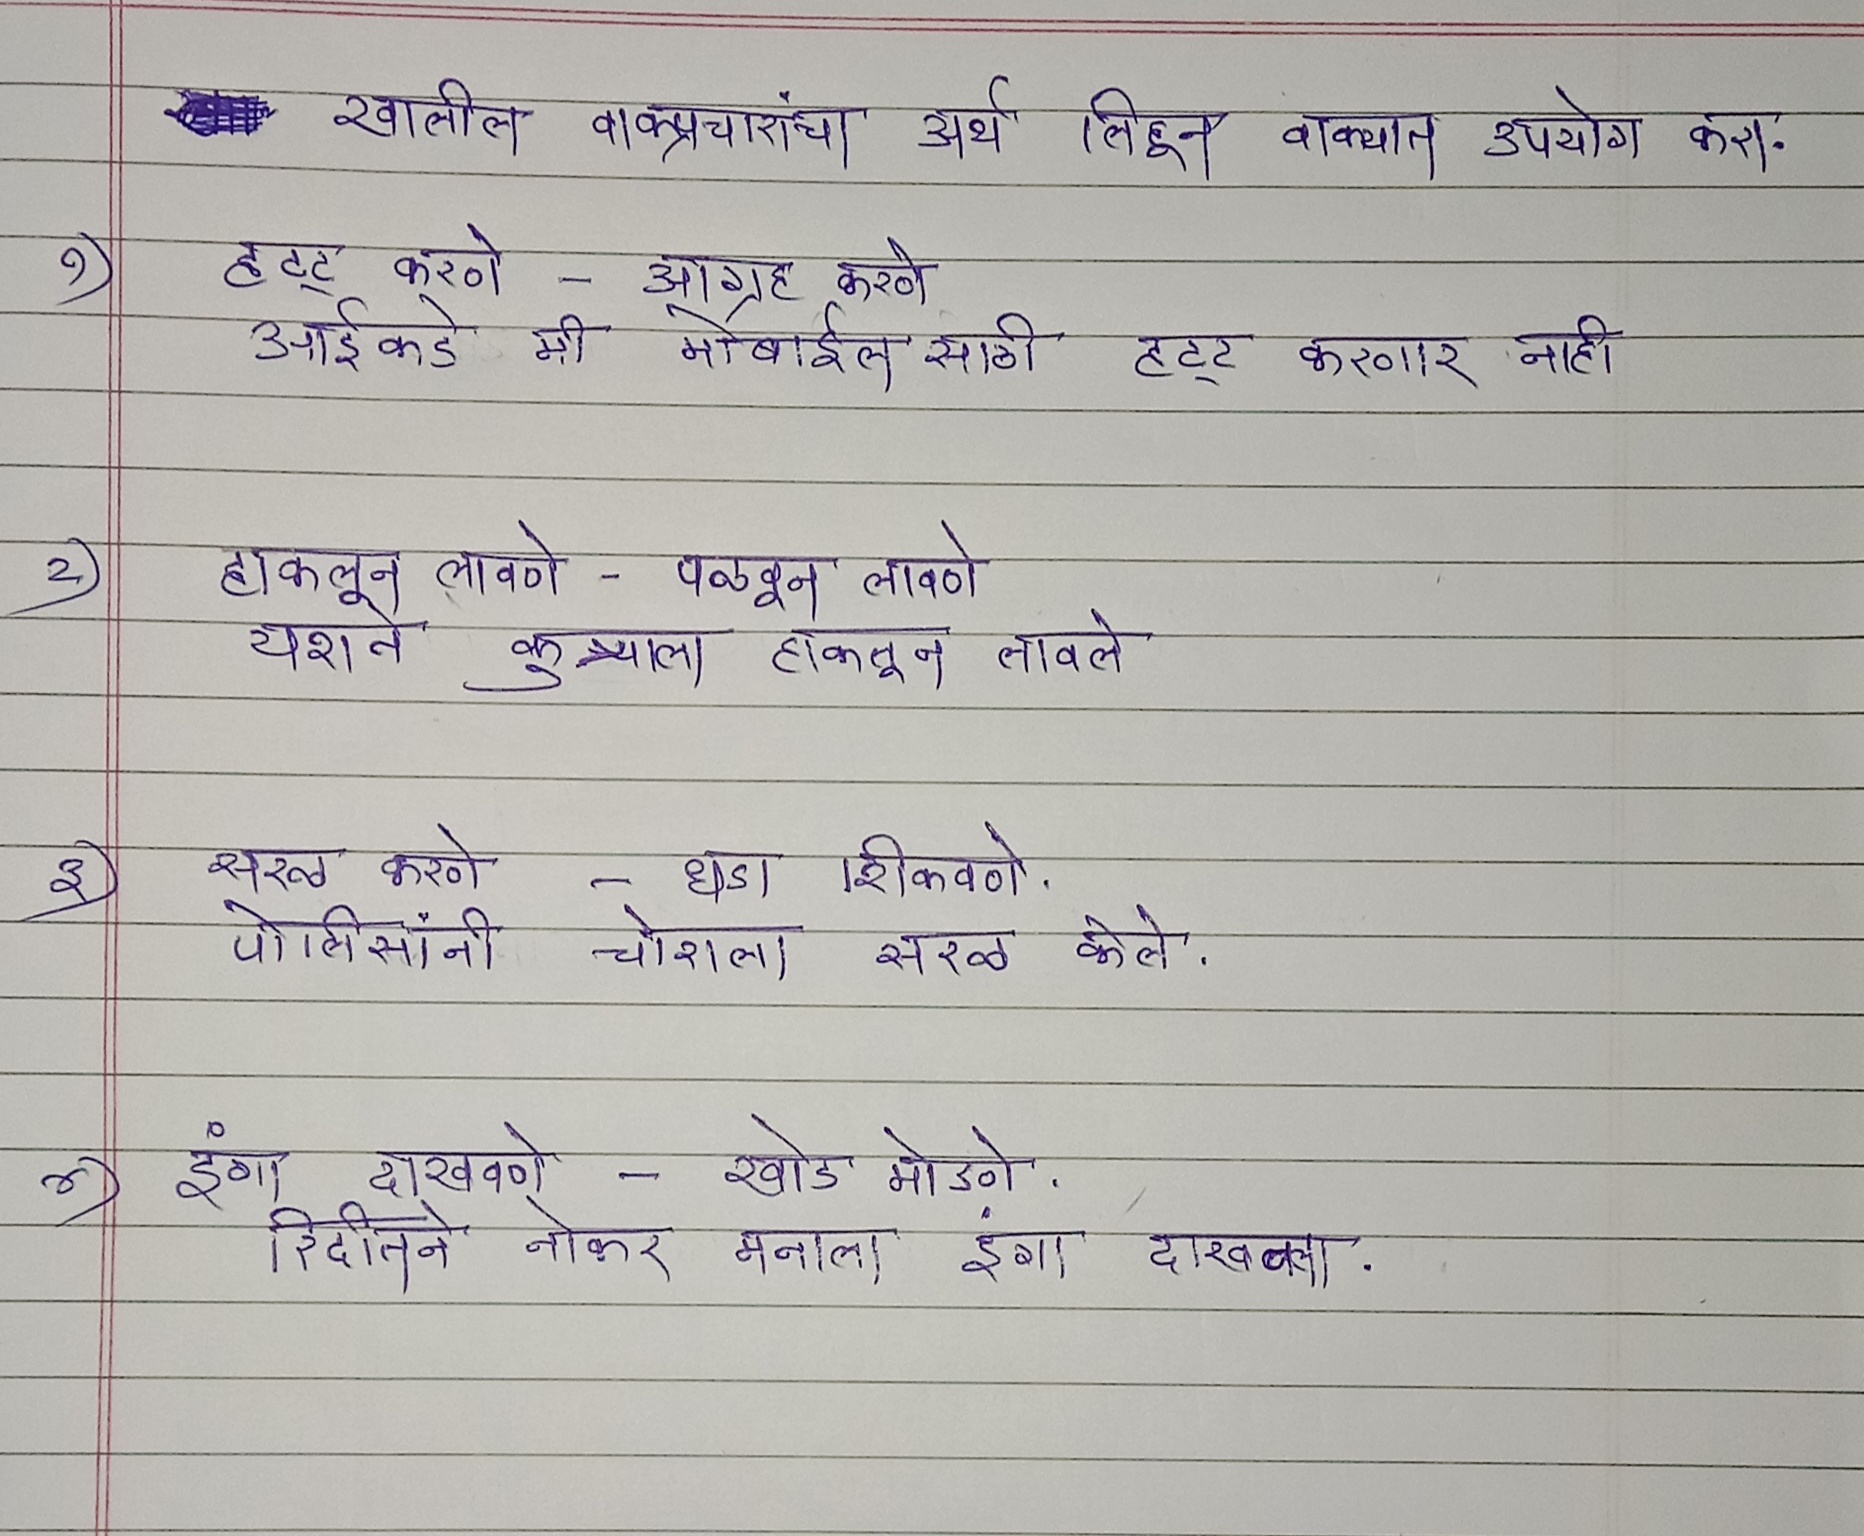 खालील वाक्प्रचारांचा अर्थ लिहून वाक्यात उपयोग करा.
१) हट्ट करणे - आग्रह करणे
आईकडे मी मोबाईल साठी हट्ट करणार नाही
२) हाकलून लावणे - पळवून लावणे
यशने कुत्र्याला हाकलून लावले
३) सरळ करणे - धडा शिकवणे.
पोलीसांनी चोराला सरळ केले.
४) इंगा दाखवणे - खोड मोडणे.
रिदीतने नोकर मनाला इंगा दाखवला.